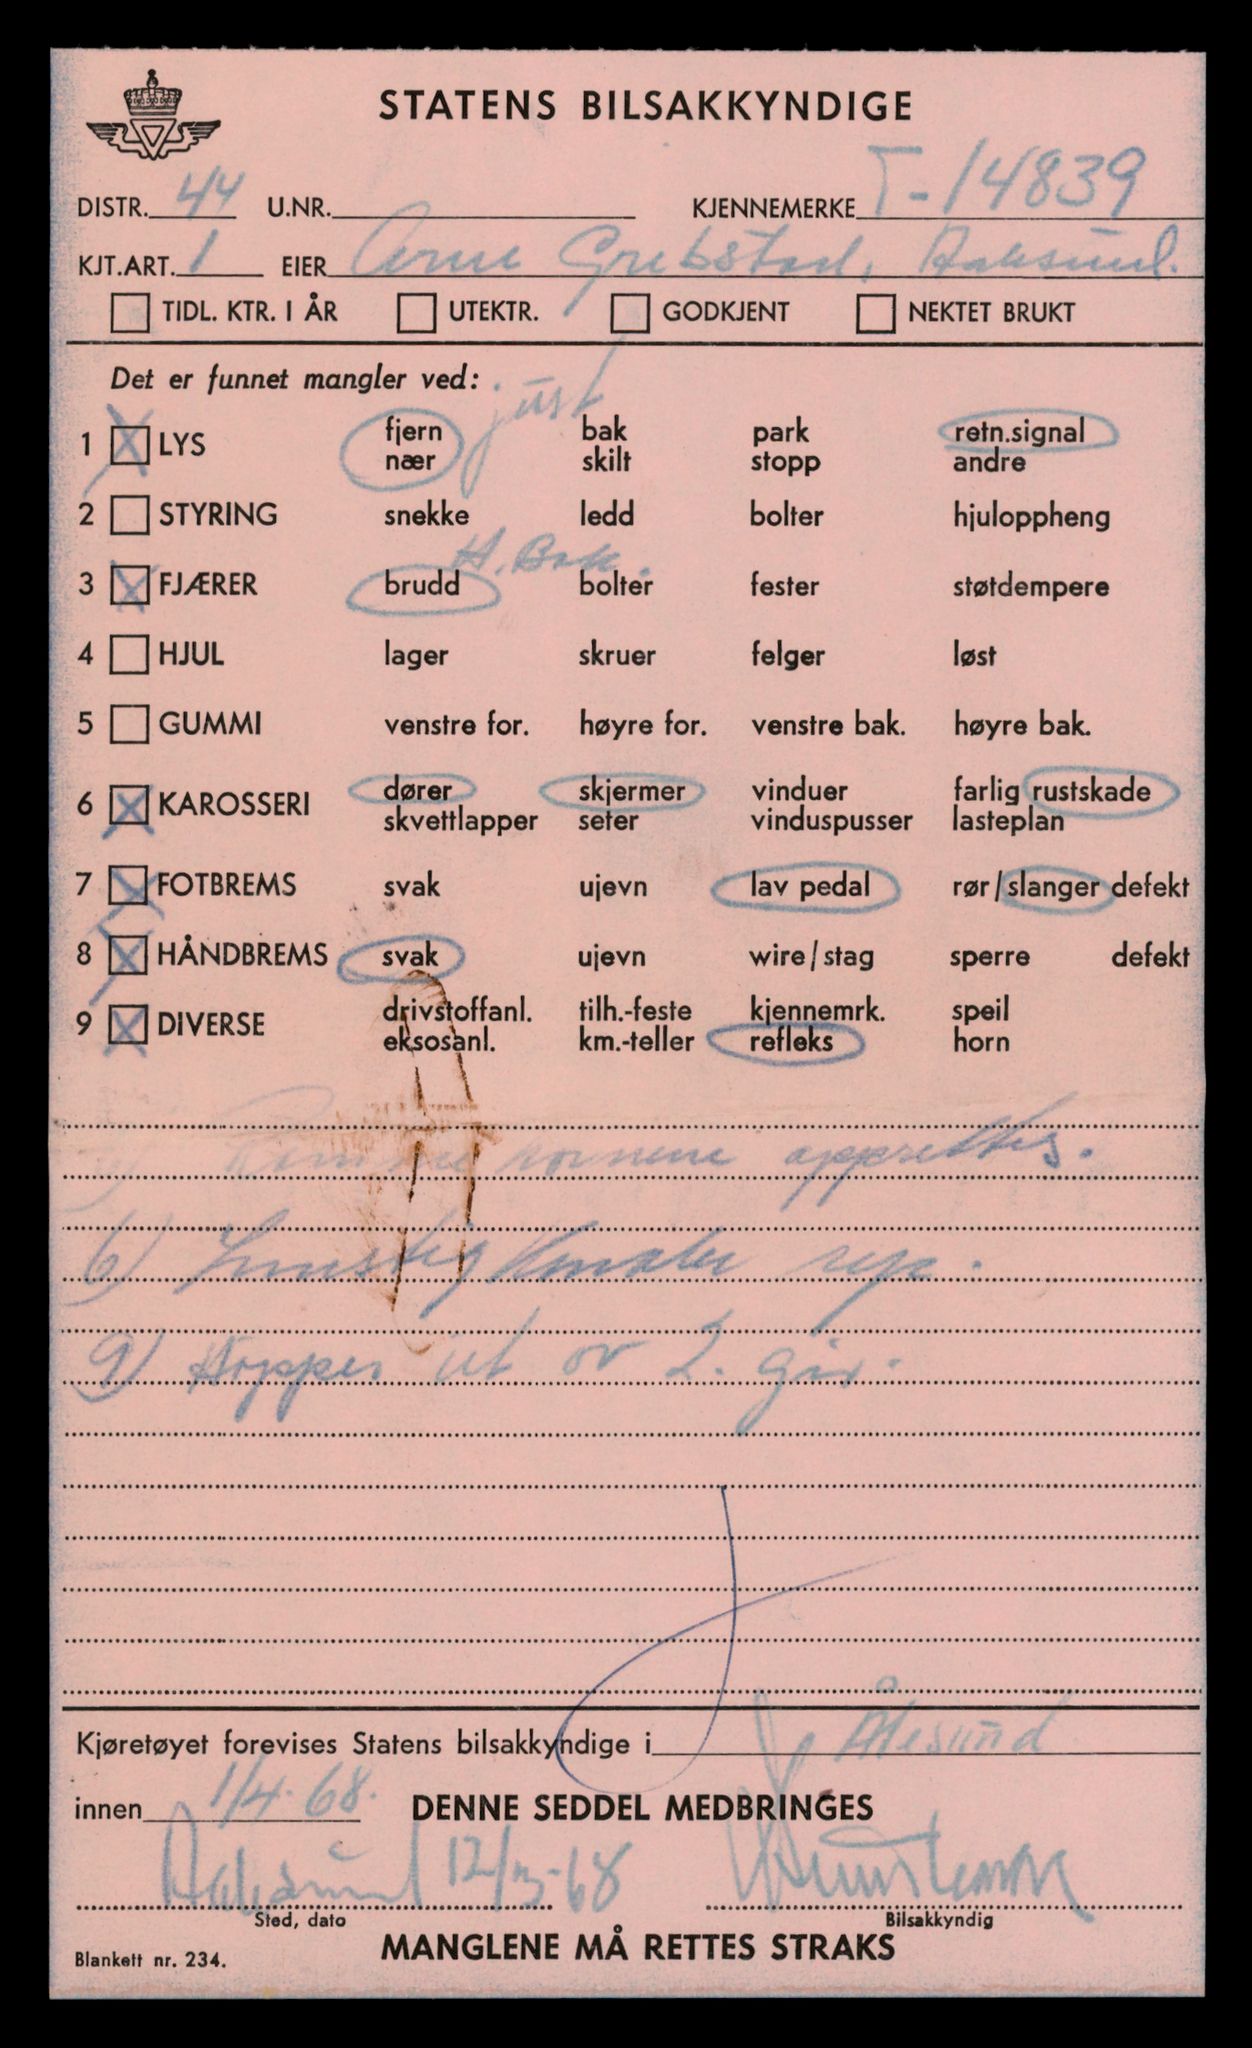 STATENS BILSAKKYNDIGE
DISTR. 44 U.NR. KJENNEMERKE T-14839
KJT.ART. 1 EIER Arne Grebstad, Aalesund.
TIDL. KTR. I ÅR UTEKTR. GODKJENT NEKTET BRUKT
Det er funnet mangler ved: just
1 LYS fjern bak park retn.signal
nær skilt stopp andre
2 STYRING snekke ledd bolter hjuloppheng
H. Bak.
3 FJÆRER brudd bolter fester støtdempere
4 HJUL lager skruer felger løst
5 GUMMI venstre for. høyre for. venstre bak. høyre bak.
6 KAROSSERI dører skjermer vinduer farlig rustskade
skvettlapper seter vinduspusser lasteplan
7 FOTBREMS svak ujevn lav pedal rør/slanger defekt
8 HÅNDBREMS svak ujevn wire/stag sperre defekt
9 DIVERSE drivstoffanl. tilh.-feste kjennemrk. speil
eksosanl. km.-teller refleks horn
opprettes.
6) rep.
9) Hopper ut av 2. gir.
Kjøretøyet forevises Statens bilsakkyndige i Ålesund
innen 1/4-68. DENNE SEDDEL MEDBRINGES
Aalesund 12/3-68
Sted, dato Bilsakkyndig
Blankett nr. 234. MANGLENE MÅ RETTES STRAKS